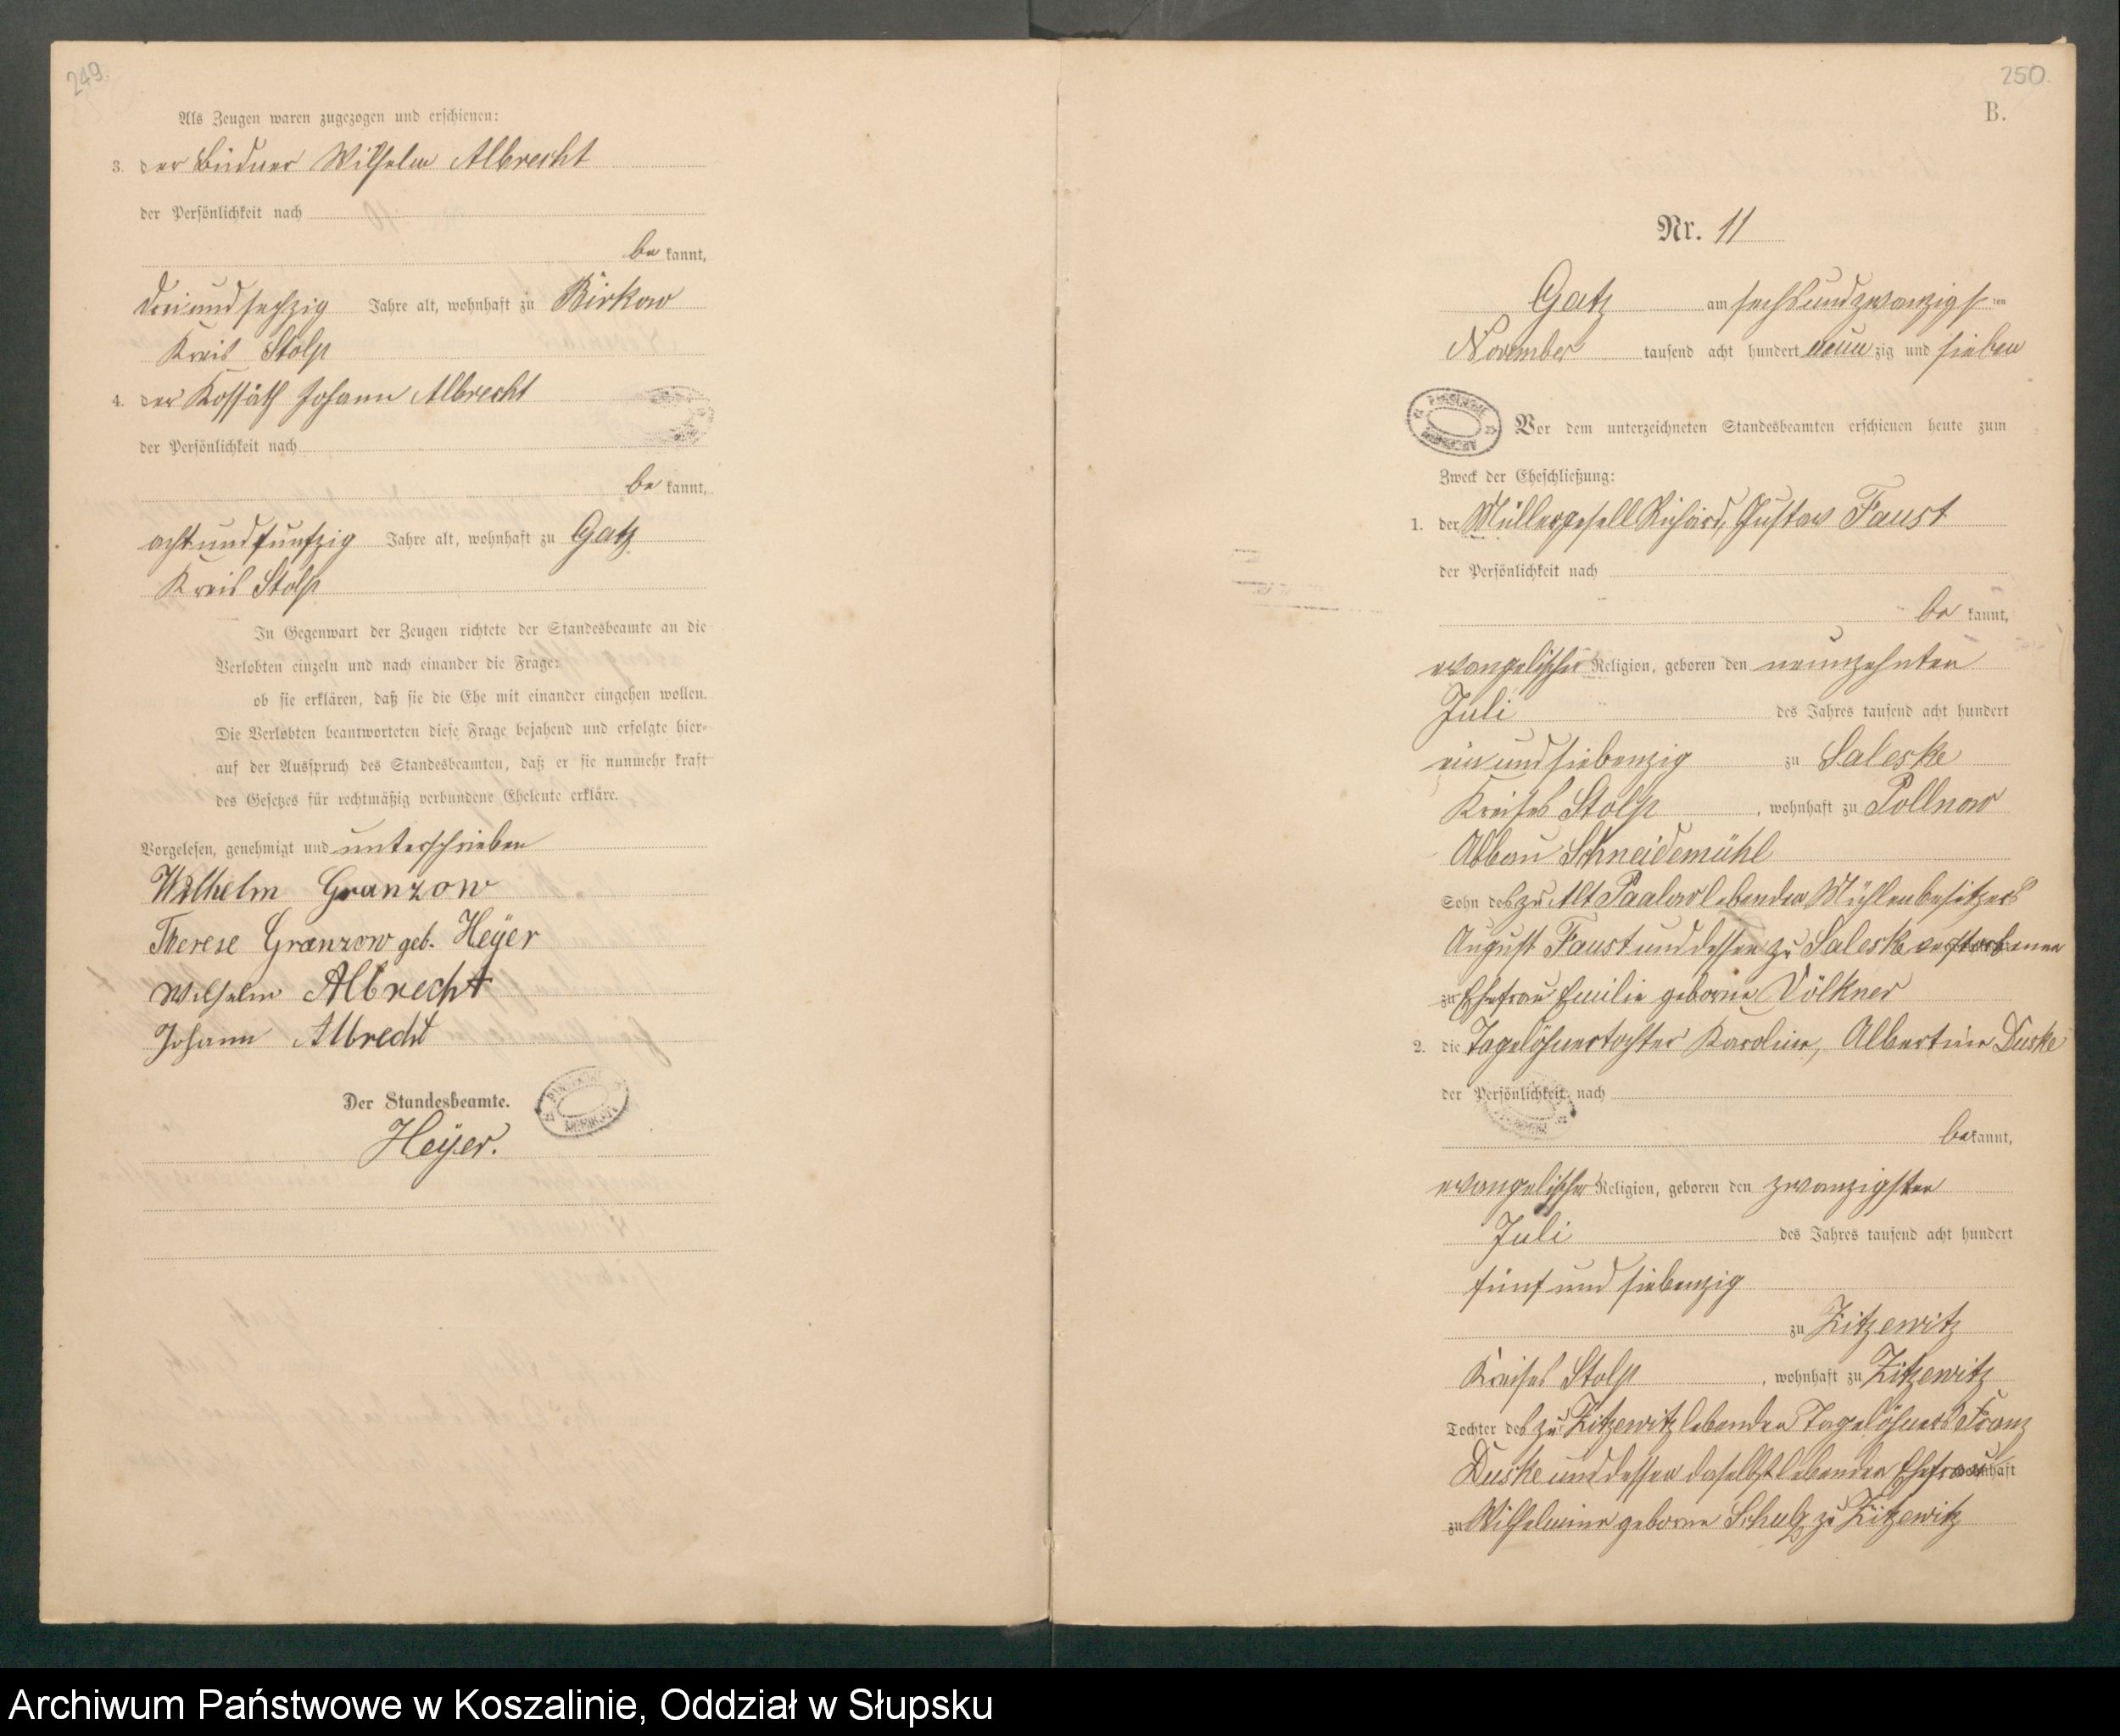 249.
Als Zeugen waren zugezogen und erschienen:
3. der Büdner Wilhelm Albrecht
der Persönlichkeit nach
be kannt,
dreiundsechzig Jahre alt, wohnhaft zu Birkow
Kreis Stolp
4. der Kossäth Johann Albrecht
der Persönlichkeit nach
be kannt,
achtundfünfzig Jahre alt, wohnhaft zu Gatz
Kreis Stolp
In Gegenwart der Zeugen richtete der Standesbeamte an die
Verlobten einzeln und nach einander die Frage:
ob sie erklären, daß sie die Ehe mit einander eingehen wollen.
Die Verlobten beantworteten diese Frage bejahend und erfolgte hier-
auf der Ausspruch des Standesbeamten, daß er sie nunmehr kraft
des Gesetzes für rechtmäßig verbundene Eheleute erkläre.
Vorgelesen, genehmigt und unterschrieben
Wilhelm Granzow
Therese Granzow geb. Heyer
Wilhelm Albrecht
Johann Albrecht
Der Standesbeamte.
Heyer.
250.
B.
Nr. 11
Gatz am sechsundzwanzigsten
November tausend acht hundert neunzig und sieben
Vor dem unterzeichneten Standesbeamten erschienen heute zum
Zweck der Eheschließung:
1. der Müllergesell Richard, Gustav Faust
der Persönlichkeit nach
be kannt,
evangelischer Religion, geboren den neunzehnten
Juli des Jahres tausend acht hundert
ein und siebenzig zu Saleske
Kreises Stolp, wohnhaft zu Pollnow
Abbau Schneidemühl
Sohn des zu Alt Paalow lebenden Mühlenbesitzers
August Faust und dessen zu Saleske verstorbenen
zu Ehefrau Emilie geborne Völkner
2. die Tagelöhnertochter Karoline, Albertine Duske
der Persönlichkeit nach
bekannt,
evangelischer Religion, geboren den zwanzigsten
Juli des Jahres tausend acht hundert
fünf und siebenzig
zu Zitzewitz
Kreises Stolp, wohnhaft zu Zitzewitz
Tochter des zu Zitzewitz lebenden Tagelöhners Franz
Duske und dessen daselbst lebenden Ehefrau wohnhaft
zu Wilhelmine geborne Schulz zu Zitzewitz
Archiwum Państwowe w Koszalinie, Oddział w Słupsku